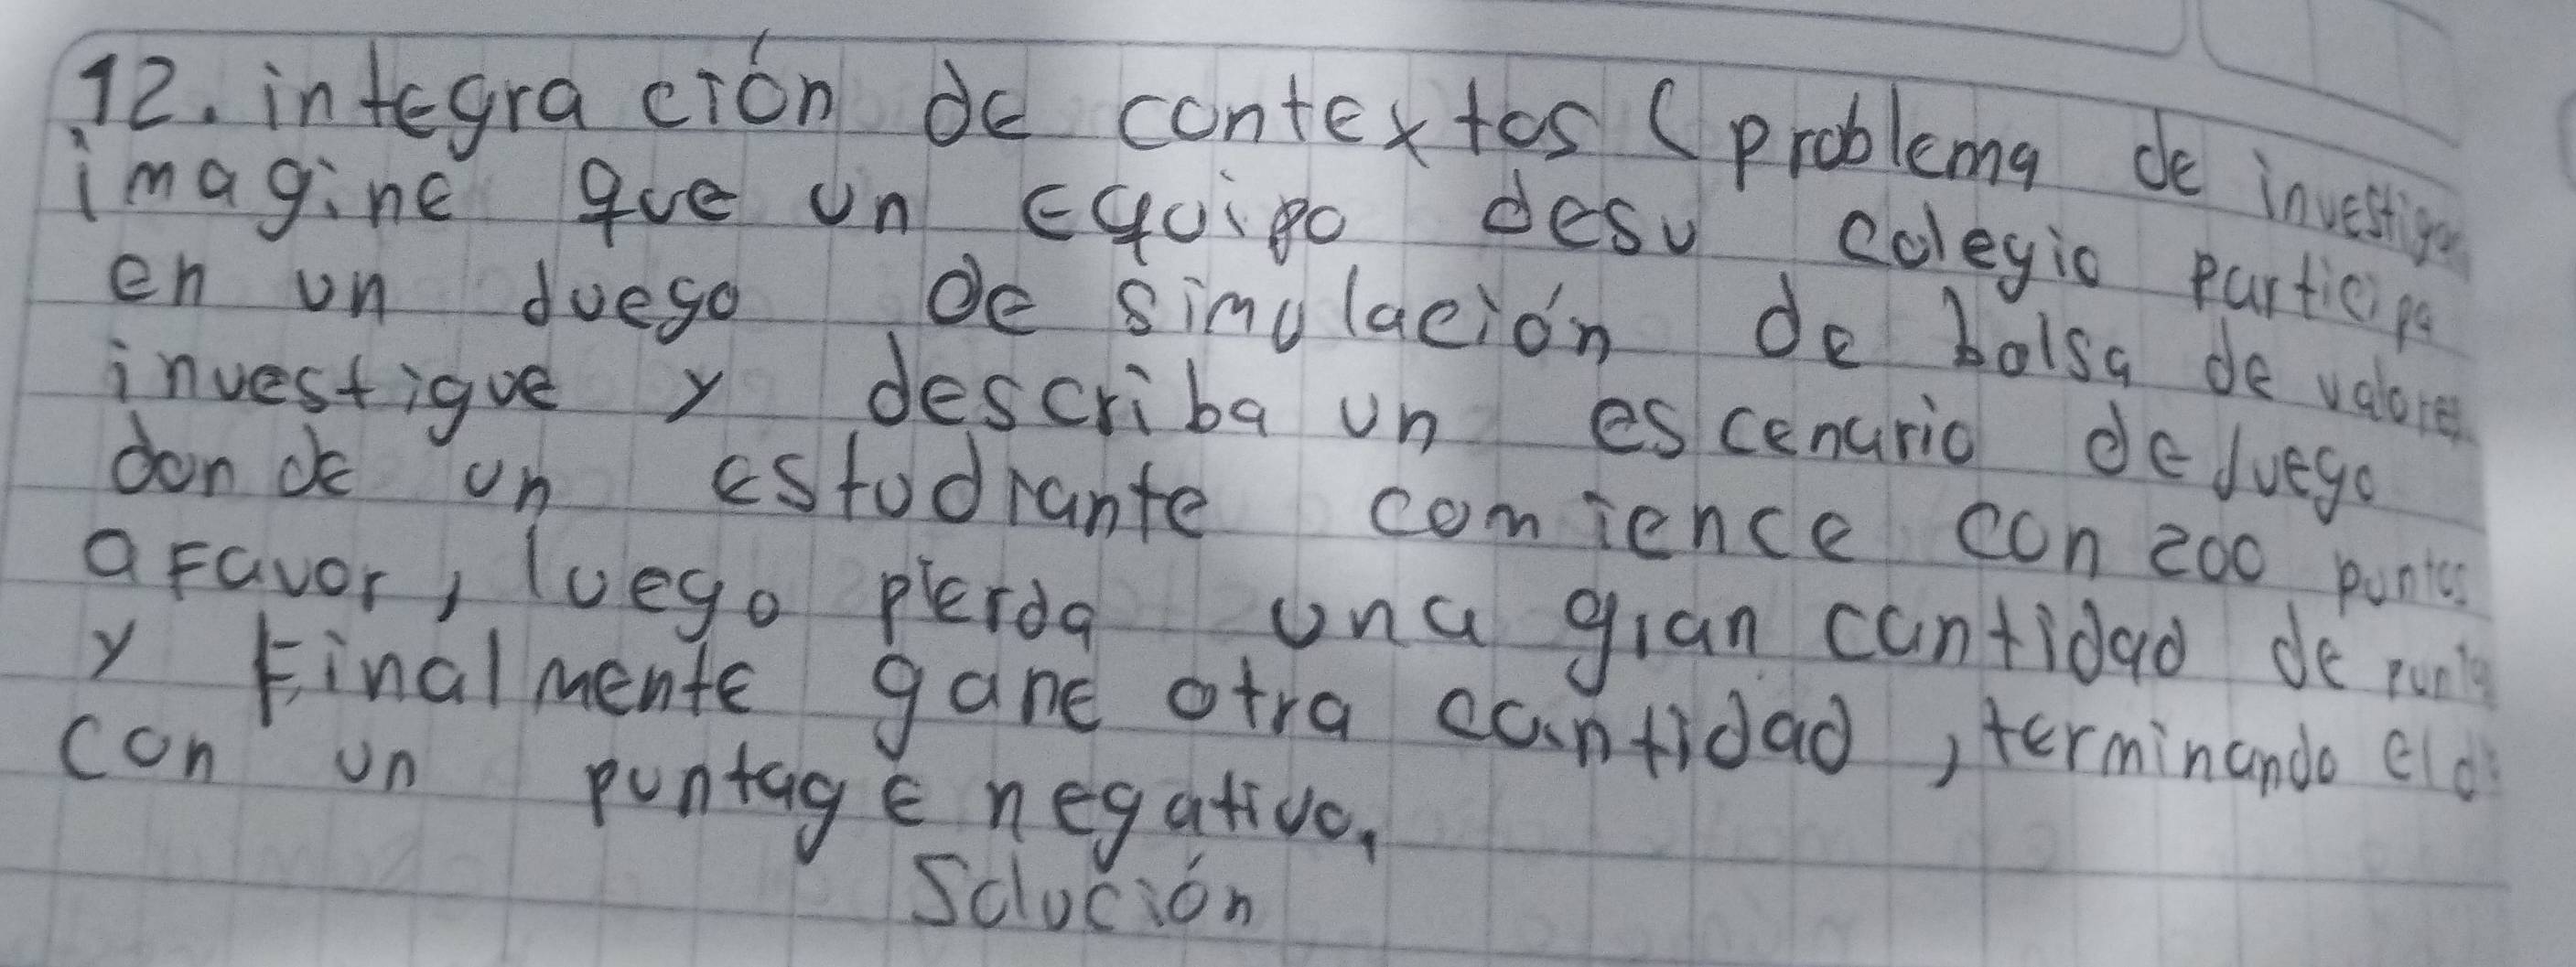 12. integra ción de contextos (problema de investiga
imagine que un equipo desu colegio participa
en un duego de simulación de bolsa de valores
investigue y describa un escenario de Juego
donde un estudiante comience con 200 puntos
a Favor, luego pierda una gran cantidad de
y Finalmente gane otra cantidad, terminando el
con un puntage negativo,
Solución